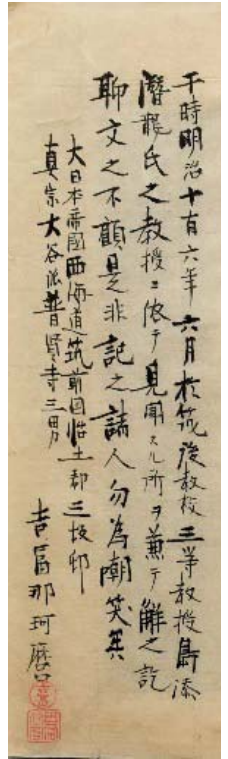 干時明治十有六年六月於筑後教校三等教授島添
潛龍氏之教授ニ依テ見聞スル所ヲ兼テ解之記
聊文之不顧是非記之諸人勿為嘲笑矣
大日本帝國西海道筑前国怡土郡三坂邨
真宗大谷派普賢寺三男
吉富那珂麿